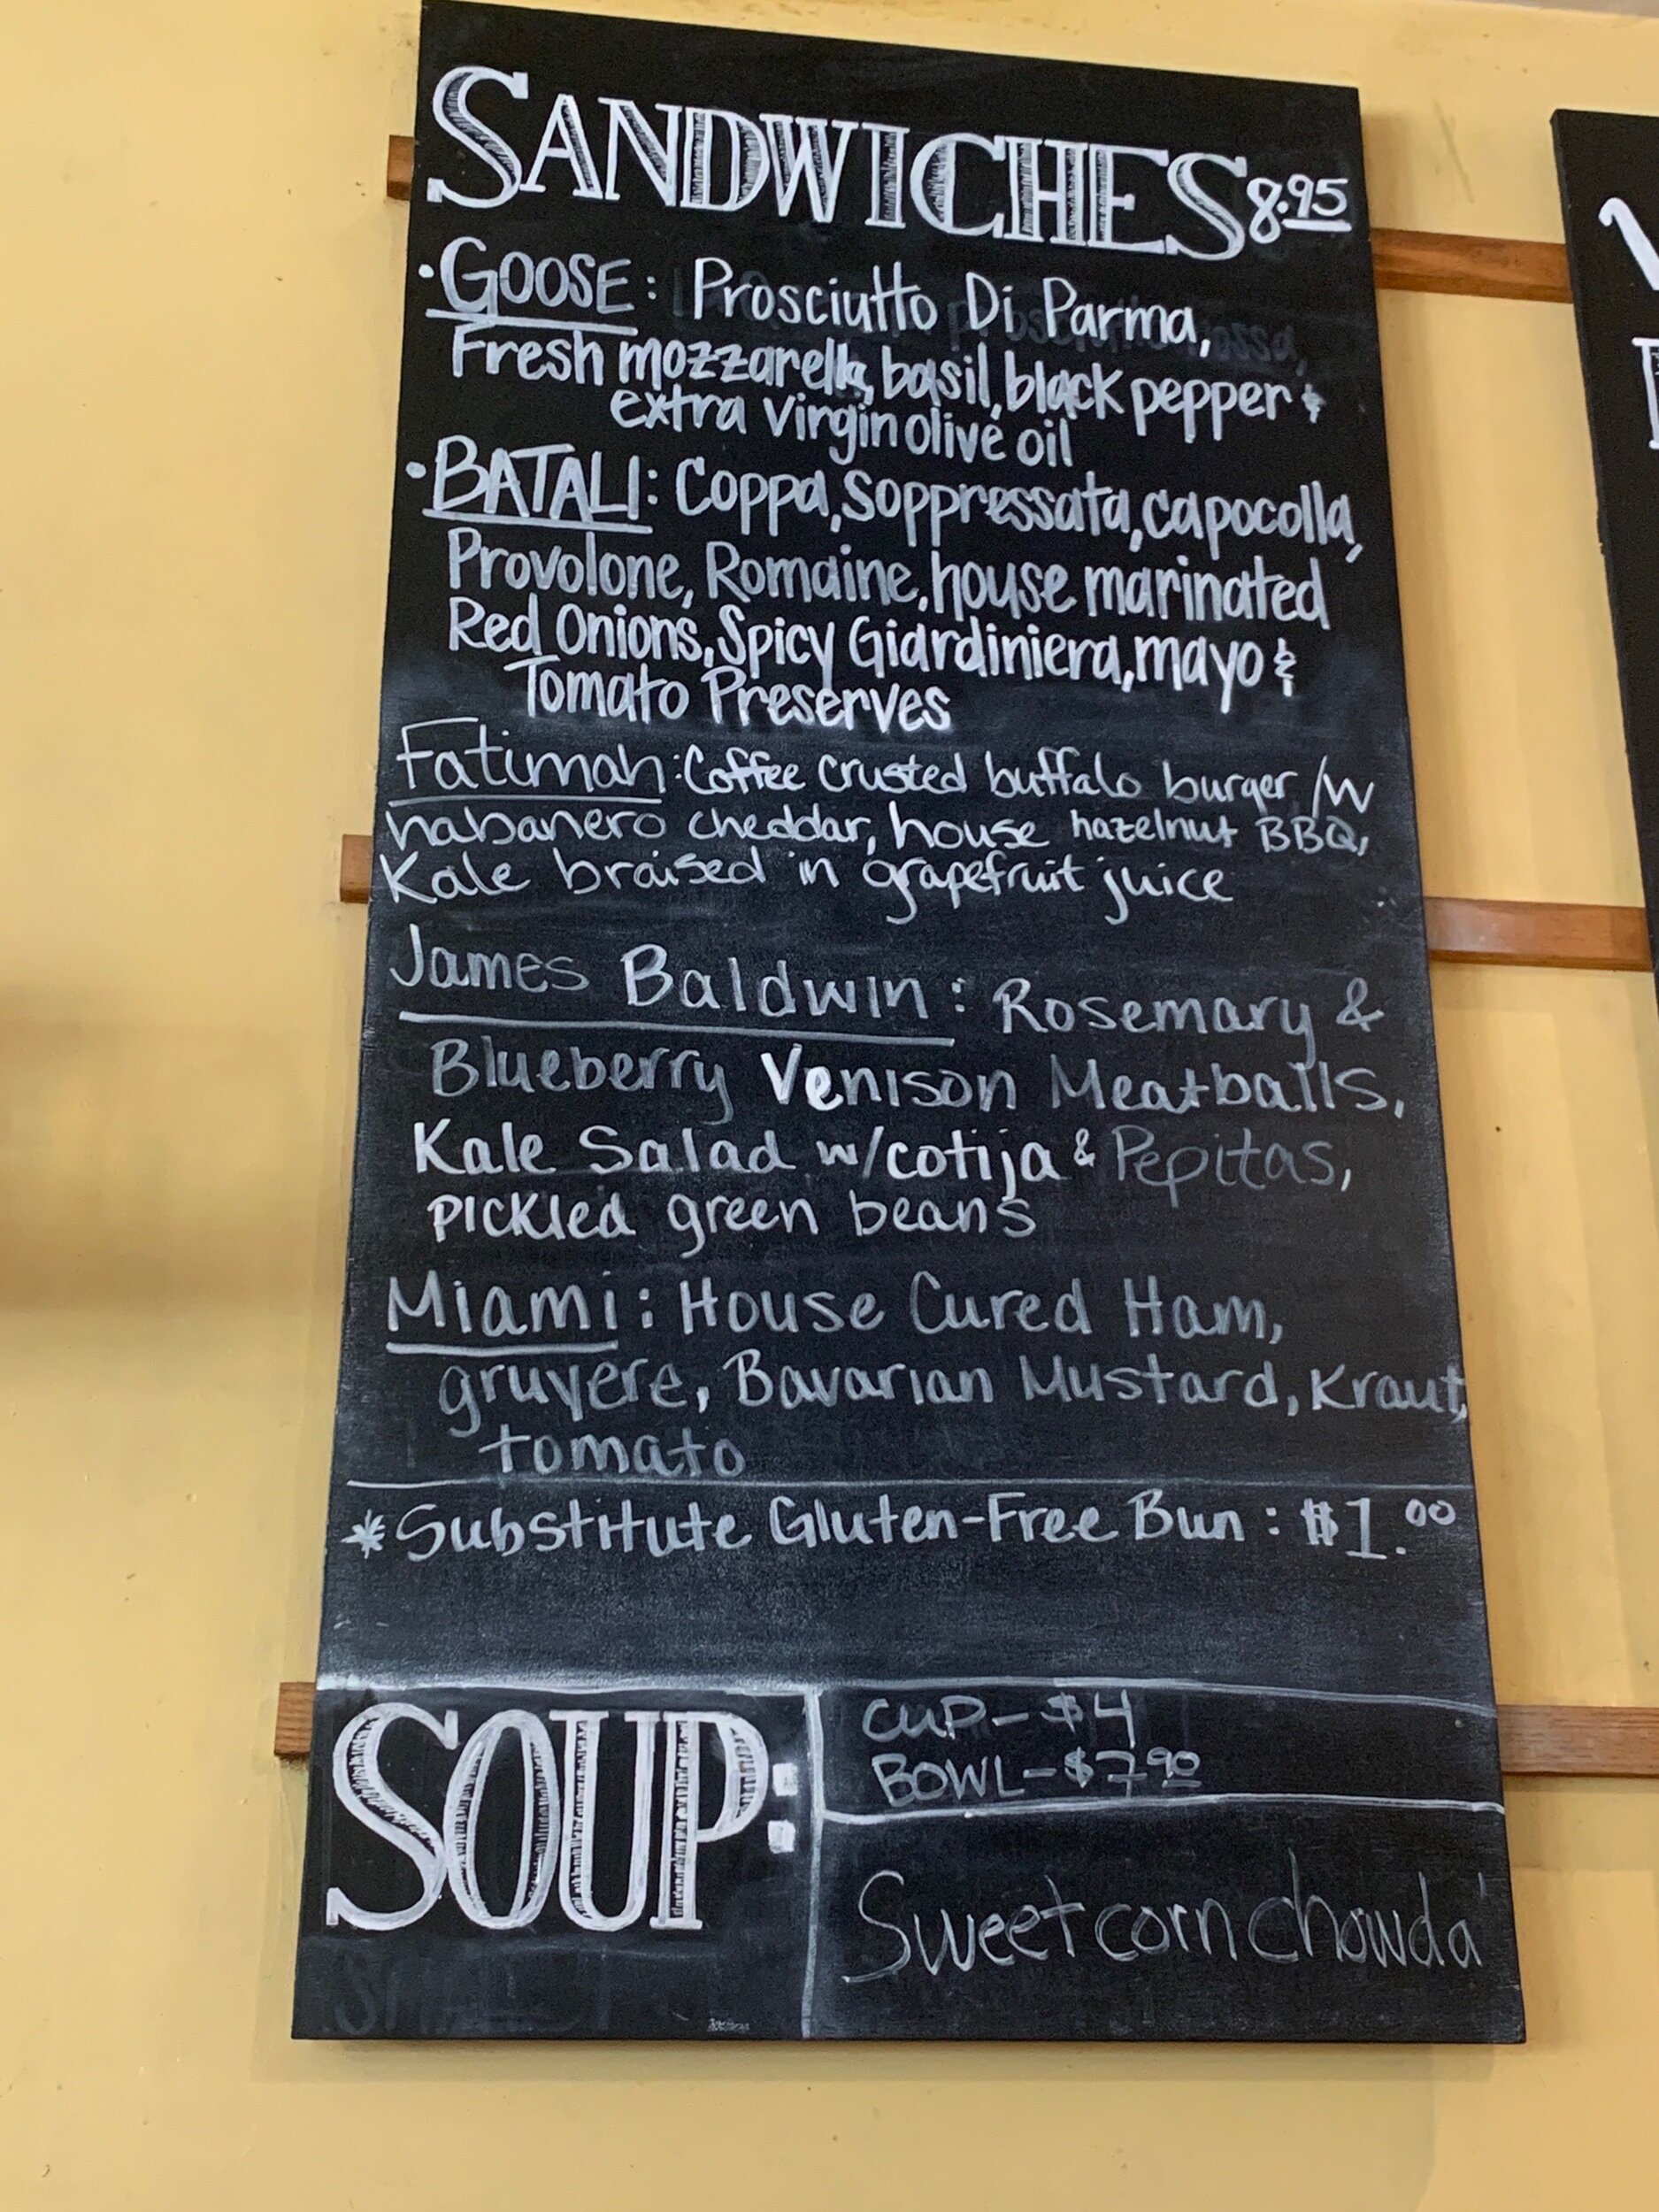 SANDWICHES 8.95
• GOOSE: Prosciutto Di Parma,
Fresh mozzarella, basil, black pepper &
extra virgin olive oil
• BATALI: Coppa, Soppressata, capocolla,
Provolone, Romaine, house marinated
Red Onions, Spicy Giardiniera, mayo &
Tomato Preserves
Fatimah: Coffee crusted buffalo burger /w
habanero cheddar, house hazelnut BBQ,
Kale braised in grapefruit juice
James Baldwin: Rosemary &
Blueberry Venison Meatballs,
Kale Salad w/cotija & Pepitas,
pickled green beans
Miami: House Cured Ham,
gruyere, Bavarian Mustard, Kraut,
tomato
* Substitute Gluten-Free Bun: $1.00
SOUP:
CUP - $4
BOWL - $7.90
Sweet corn chowda'